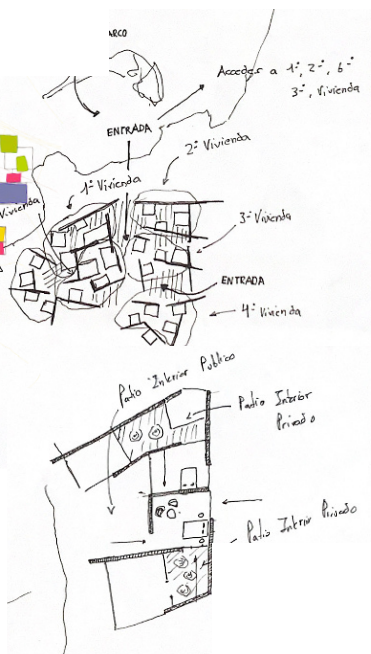 ARCO
Acceder a 1ª, 2ª, 6ª
3ª, Vivienda
ENTRADA
2ª Vivienda
1ª Vivienda
Vivienda
3ª Vivienda
ENTRADA
4ª Vivienda
Patio Interior Publico
Patio Interior
Privado
Patio Interior Privado